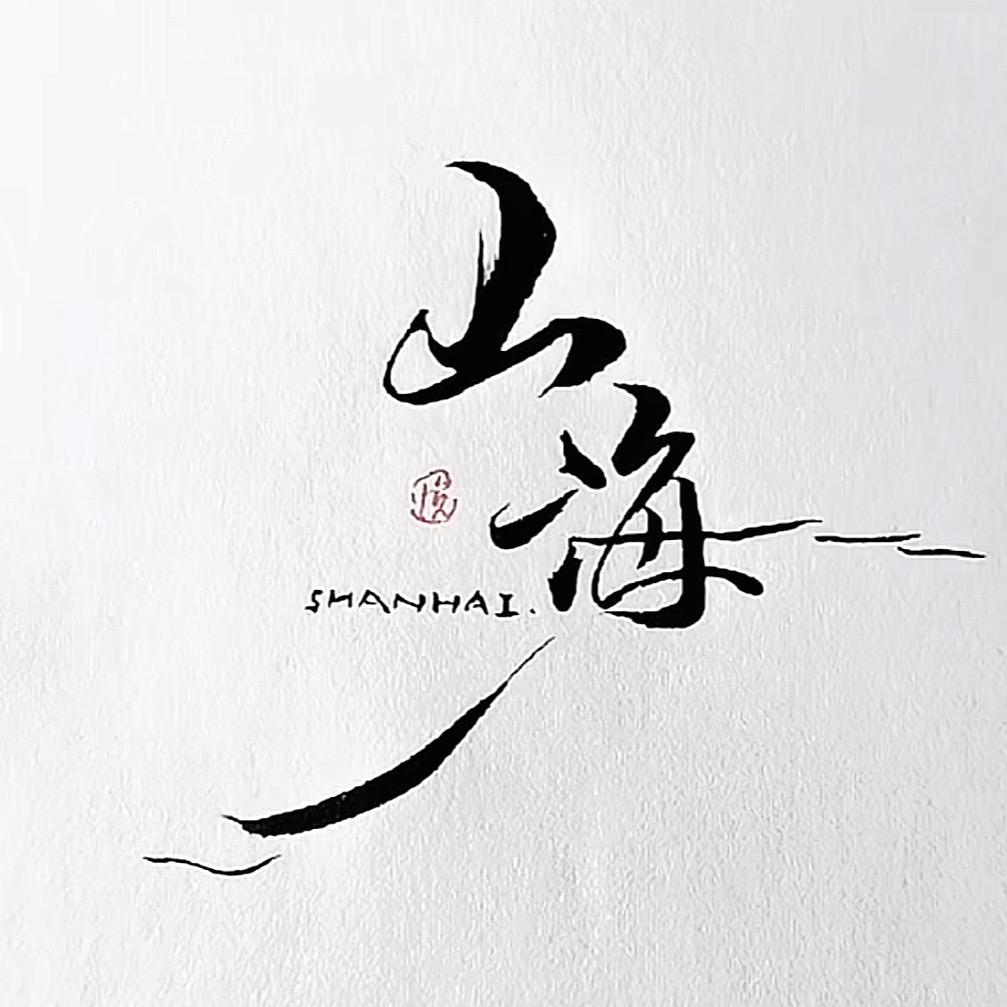 山海
SHANHAI.